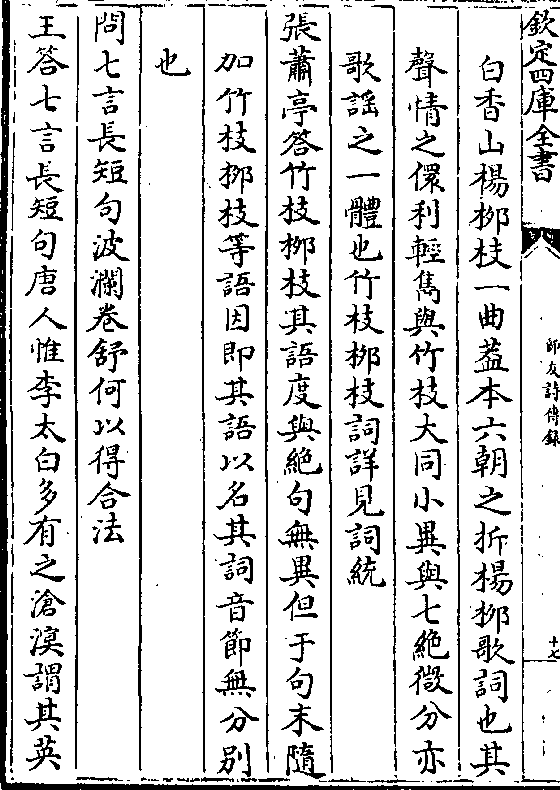 欽定四庫全書
師友詩傳錄
十七
白香山楊柳枝一曲蓋本六朝之折楊柳歌詞也其
聲情之儇利輕雋與竹枝大同小異與七絕微分亦
歌謡之一體也竹枝柳枝詞詳見詞統
張蕭亭答竹枝柳枝其語度與絶句無異但于句末隨
加竹枝柳枝等語因即其語以名其詞音節無分别
也
問七言長短句波瀾卷舒何以得合法
王答七言長短句唐人惟李太白多有之滄溟謂其英